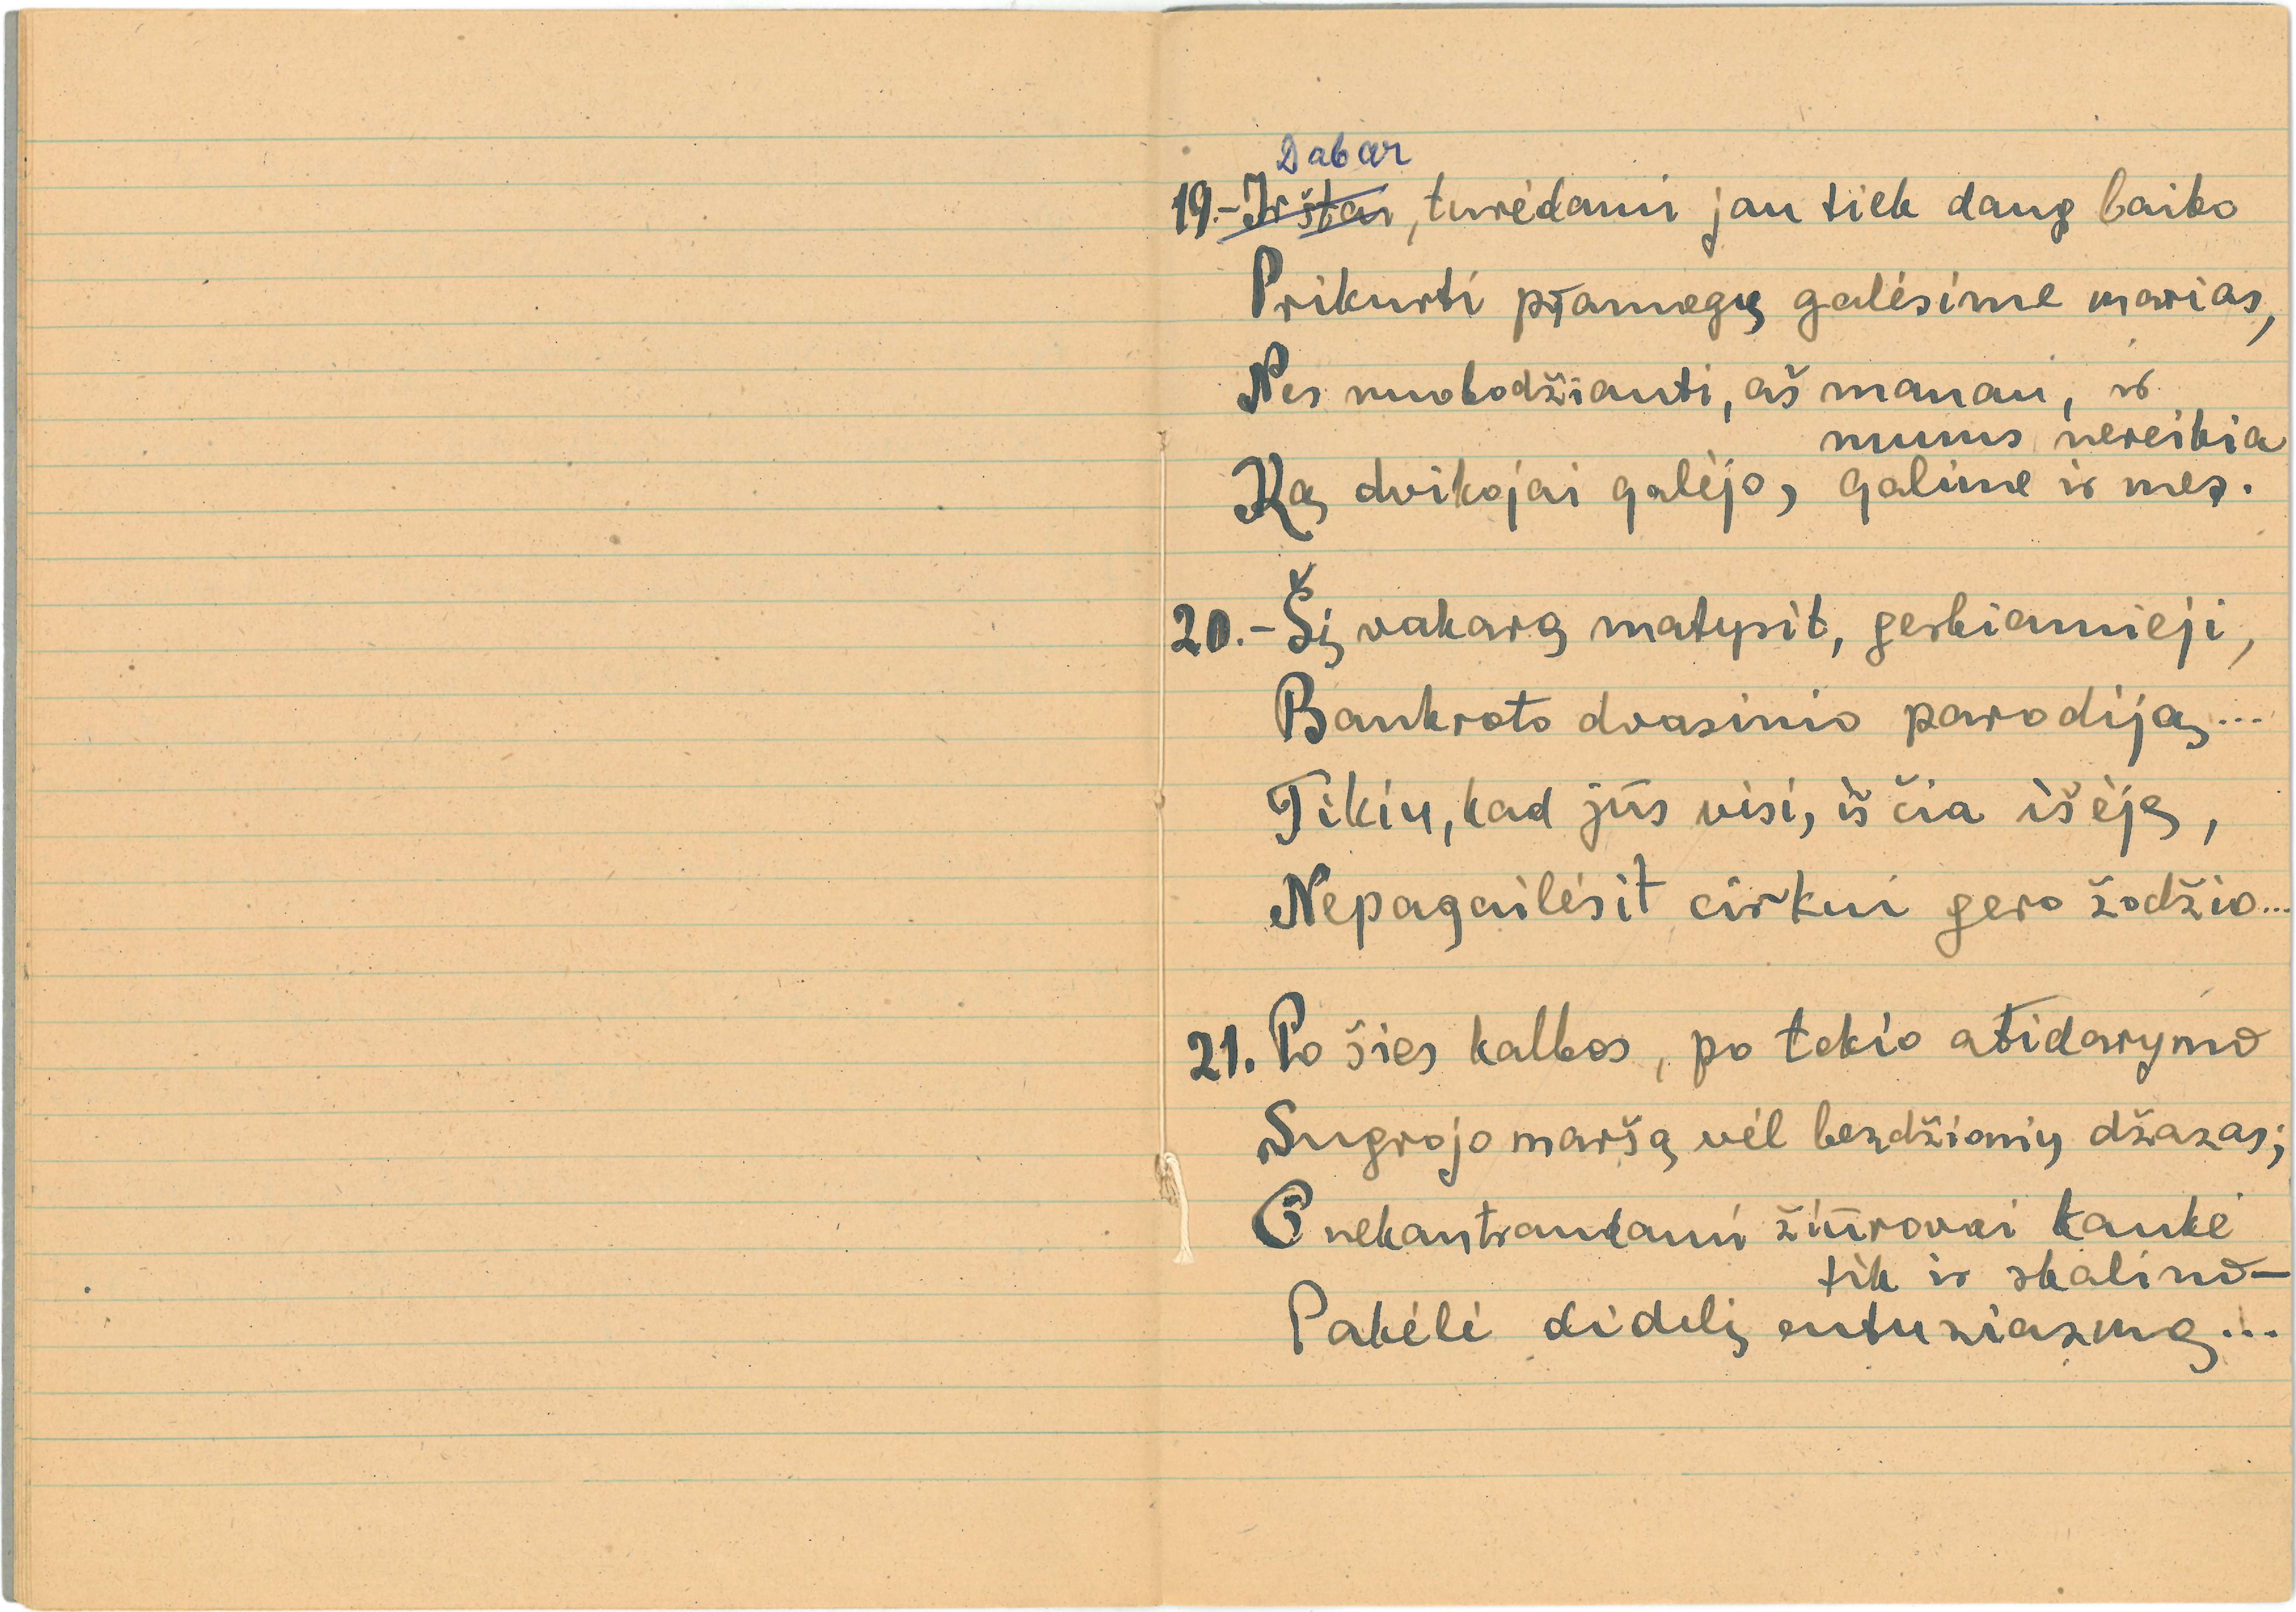 Dabar
19.- Ir štai, turėdami jau tiek daug laiko
Prikurti pramogų galėsime marias,
Nes nuobodžiauti, aš manau, ir
mums nereikia
Ką dvikojai galėjo, galime ir mes.
20.- Šį vakarą matysit, gerbiamieji,
Bankroto dvasinio parodiją...
Tikiu, kad jūs visi, iš čia išėję,
Nepagailėsit cirkui gero žodžio...
21. Po šies kalbos, po tokio atidarymo
Sugrojo maršą vėl bezdžionių džazas;
O nekantraudami žiūrovai kaukė
tik ir skalino—
Pakėlė didelį entuziazmą...